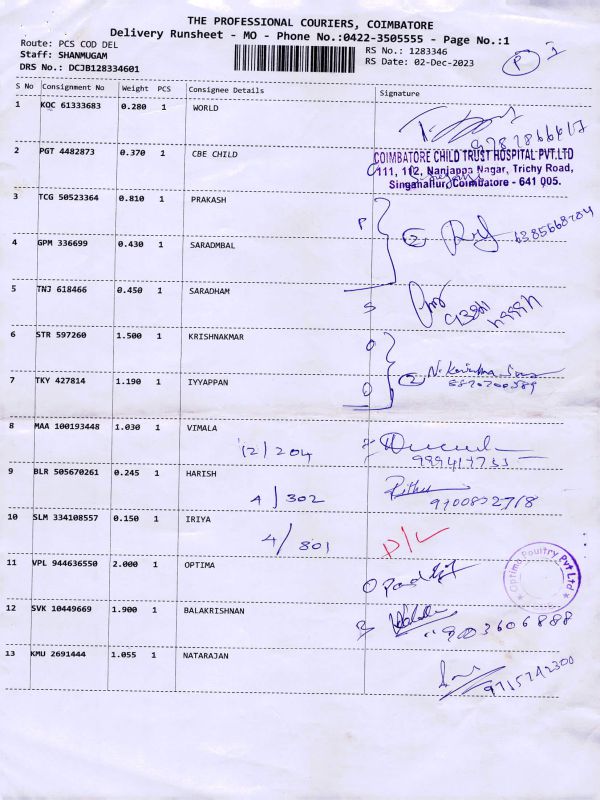 THE PROFESSIONAL COURIERS, COIMBATORE
Delivery Runsheet - MO - Phone No.:0422-3505555 - Page No.:1
Route: PCS COD DEL
Staff: SHANMUGAM
DRS No.: DCJB128334601
RS No.: 1283346
RS Date: 02-Dec-2023
P 1
S No Consignment No Weight PCS Consignee Details Signature
1 KQC 61333683 0.280 1 WORLD
2 PGT 4482873 0.370 1 CBE CHILD
COIMBATORE CHILD TRUST HOSPITAL PVT.LTD
111, 112, Nanjappa Nagar, Trichy Road,
Singanallur, Coimbatore - 641 005.
3 TCG 50523364 0.810 1 PRAKASH
P
2
4 GPM 336699 0.430 1 SARADMBAL
5 TNJ 618466 0.450 1 SARADHAM
S
6 STR 597260 1.500 1 KRISHNAKMAR
7 TKY 427814 1.190 1 IYYAPPAN
2
8 MAA 100193448 1.030 1 VIMALA
12/204
9 BLR 505670261 0.245 1 HARISH
4/302
10 SLM 334108557 0.150 1 IRIYA
4/801
D/L
11 VPL 944636550 2.000 1 OPTIMA
Optima Poultry Pvt Ltd
12 SVK 10449669 1.900 1 BALAKRISHNAN
9003606888
13 KMU 2691444 1.055 1 NATARAJAN
9715242300